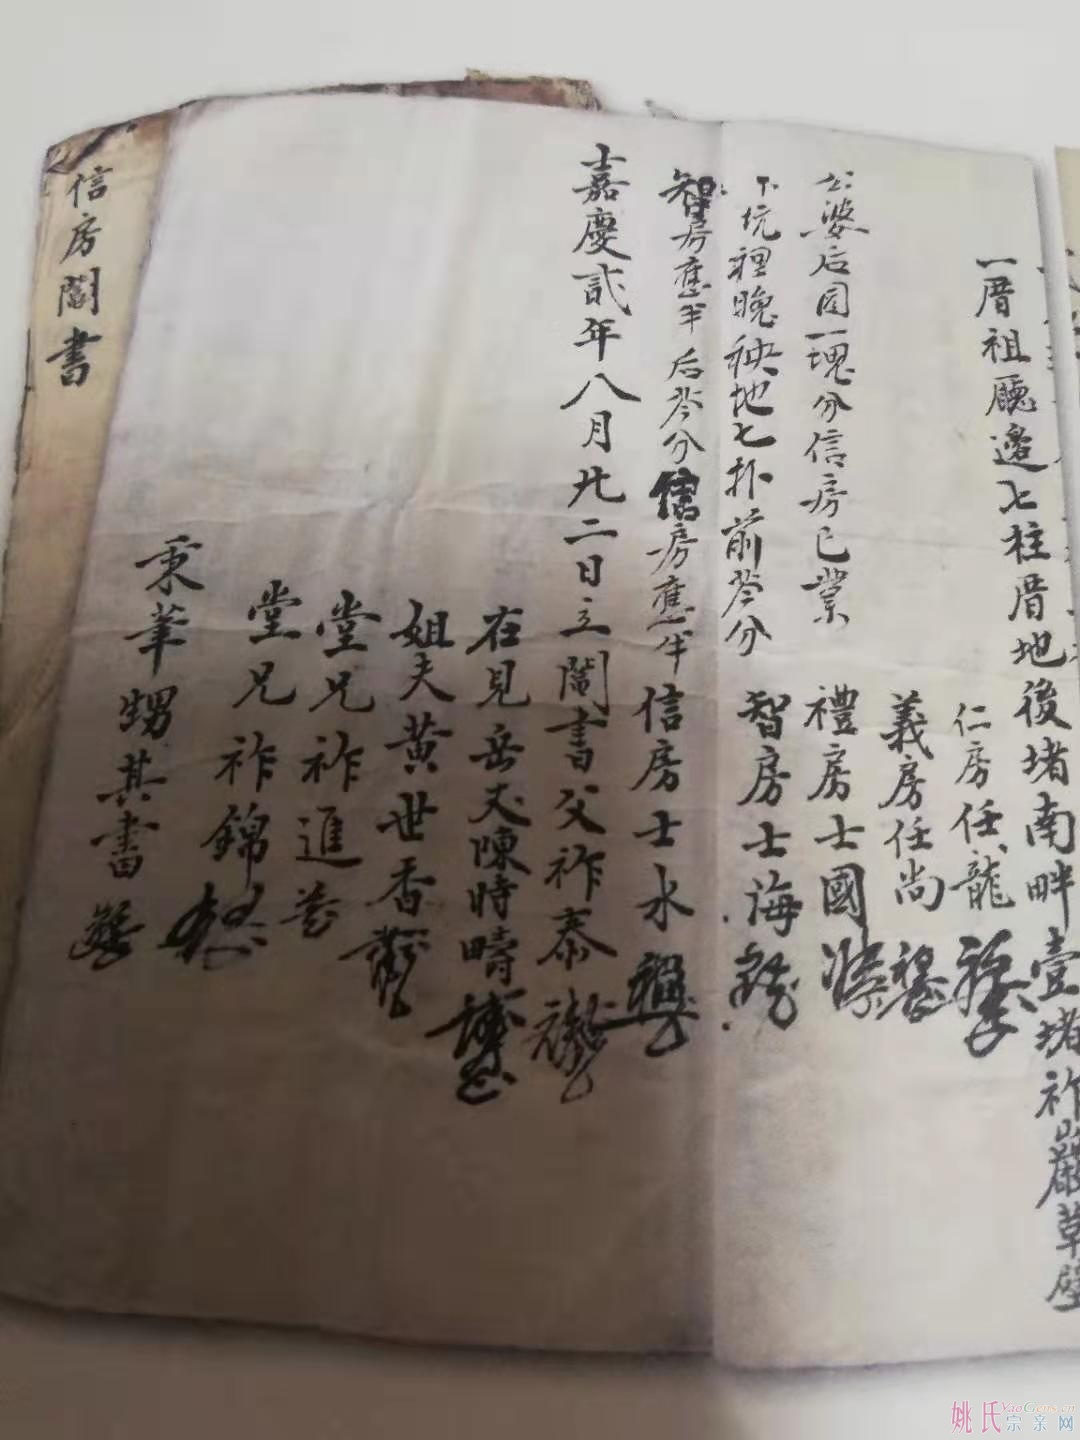 一厝祖廳邊七柱厝地後堵南畔壹堵祚巖草壁
公婆后园一塊分信房己業
下坑裡晚秧地七丘前苓分
智房應半后苓分信房應半
仁房任龍
義房任尚
禮房士國
智房士海
信房士水
嘉慶貳年八月廿二日立鬮書父祚泰
在見岳丈陳時疇
姐夫黄世香
堂兄祚進
堂兄祚錦
秉筆甥其書
信房鬮書
姚氏宗亲网
YaoGens.cn